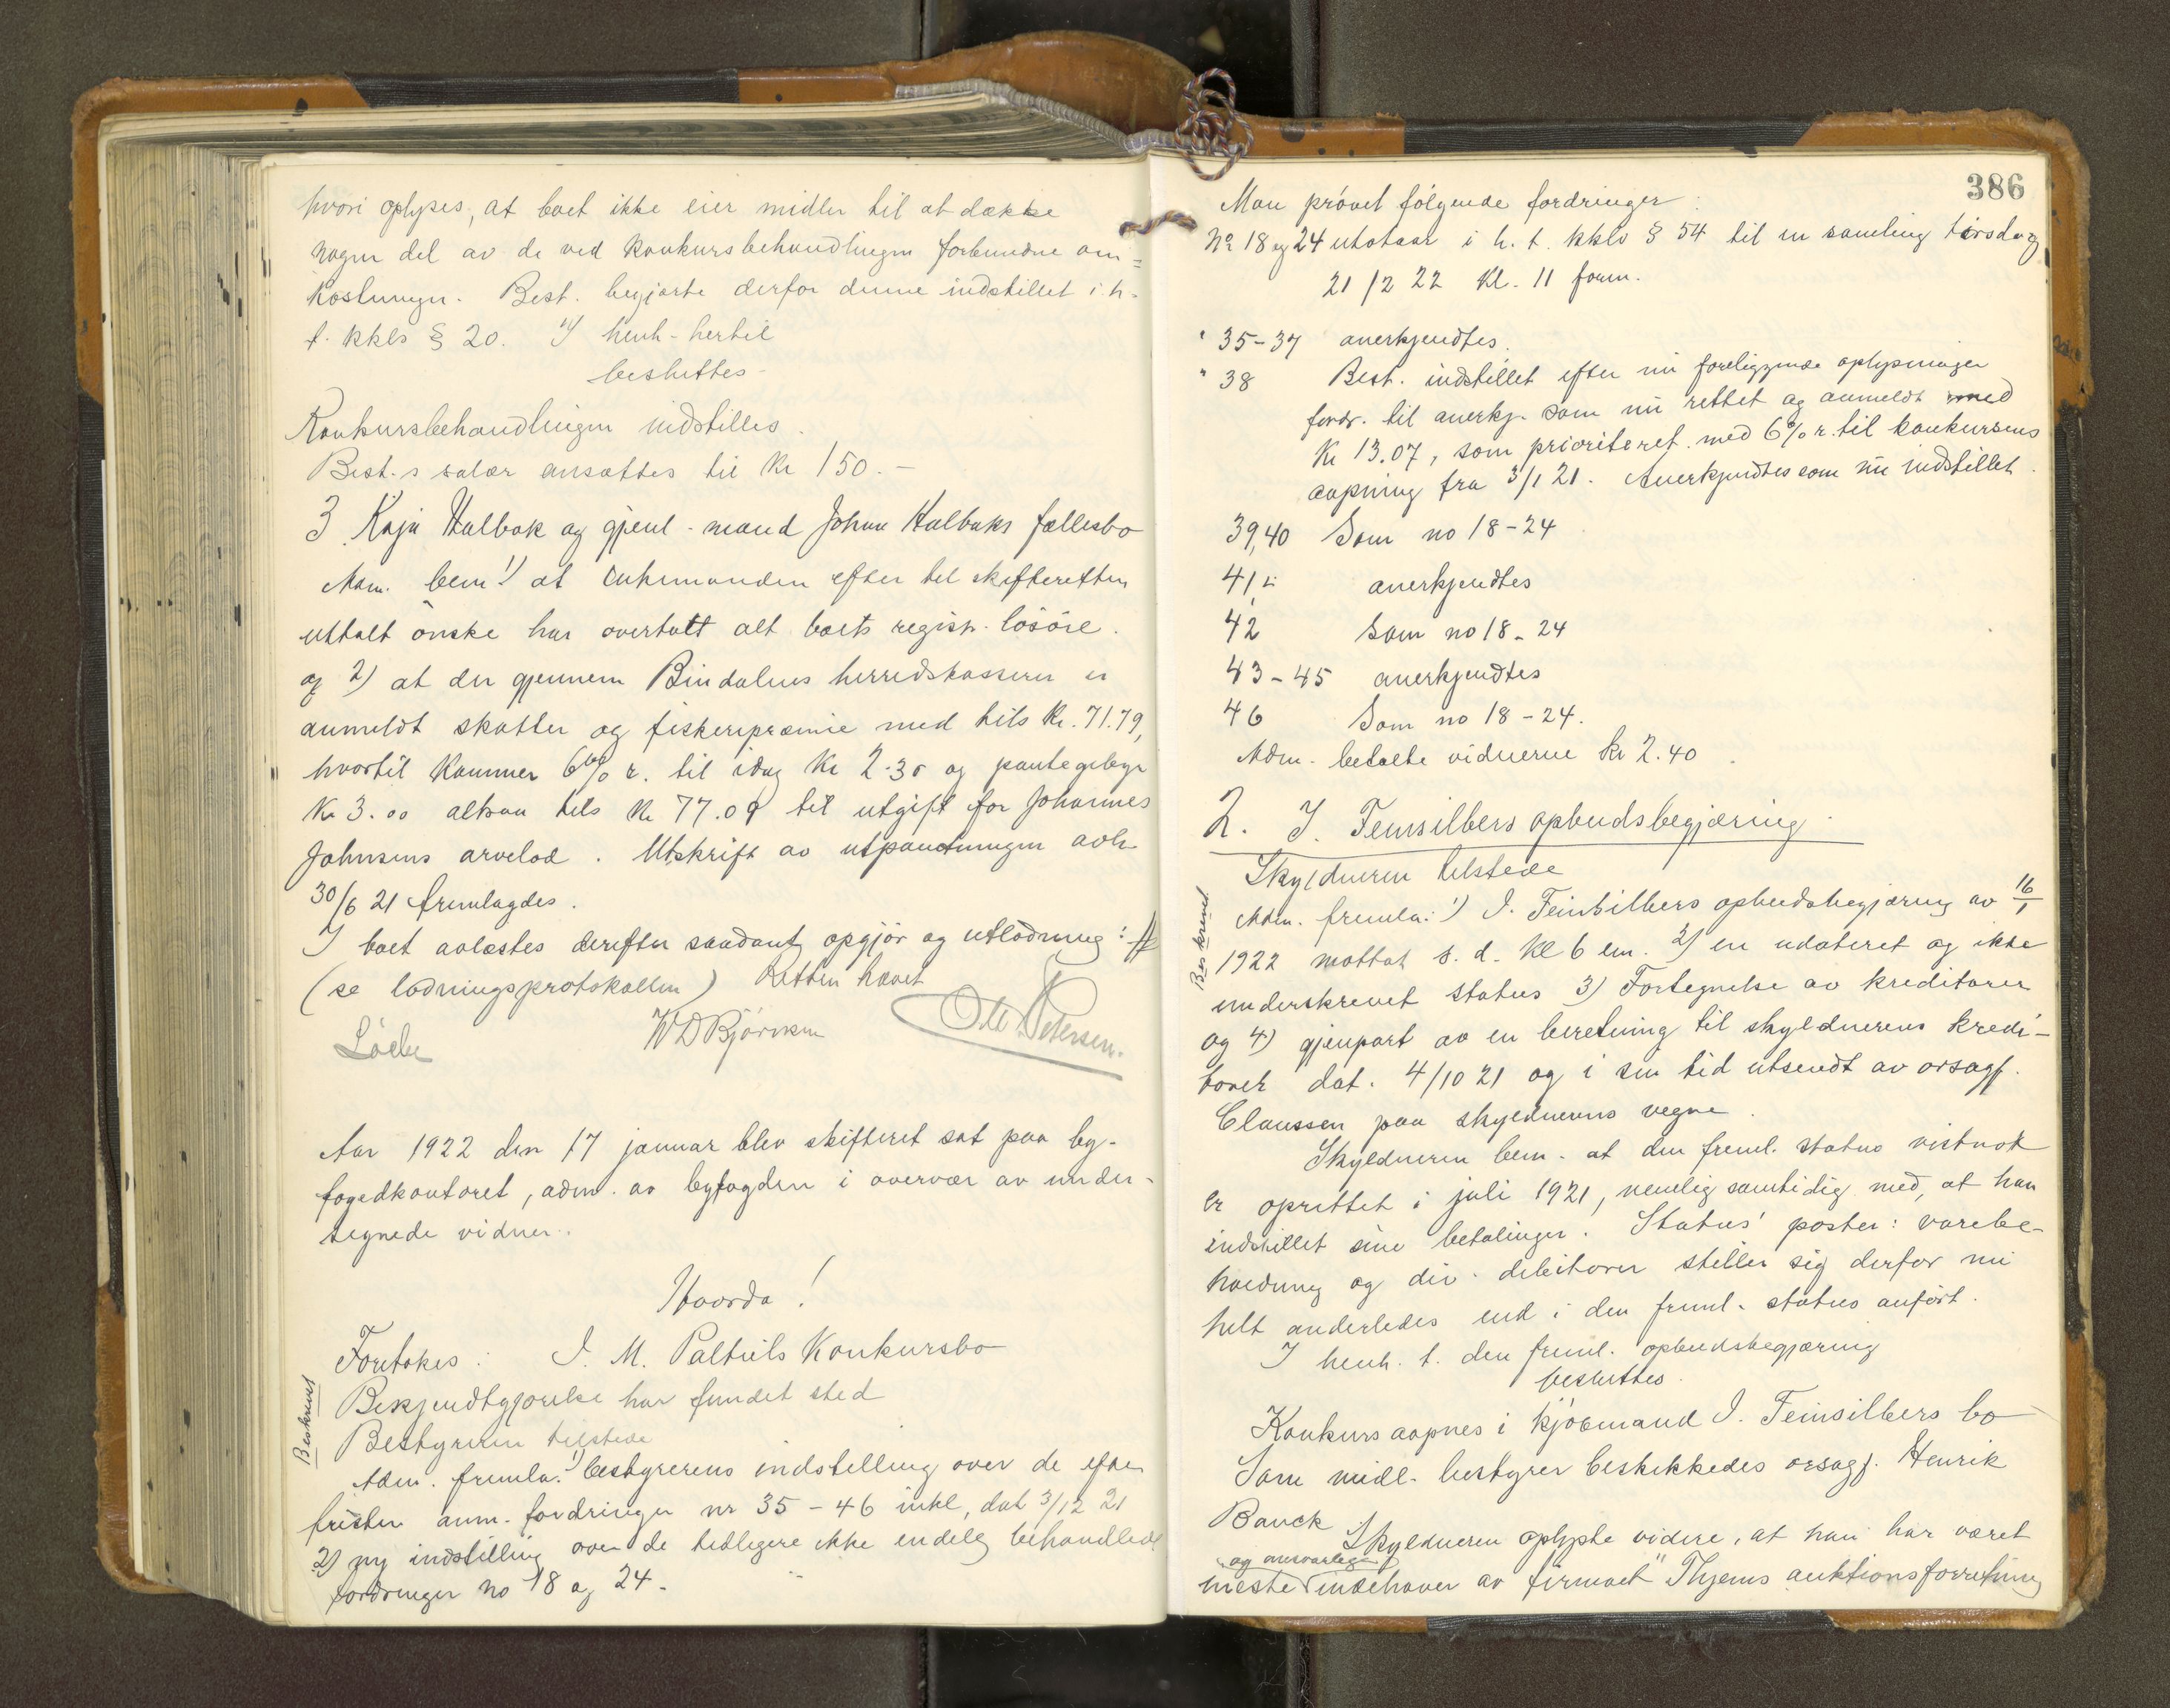 hvori oplyses, at boet ikke eier midler til at dække
nogen del av de ved konkursbehandlingen forbundne om=
kostninger. Best. begjærte derfor denne indstillet i h-
t. kkls § 20. I henh-hertil
besluttes-
Konkursbehandlingen indstilles.
Best.s salær ansattes til Kr 150.-
3 Kaja Halbak og gjenl-mand Johan Halbaks fællesbo
Adm. bem 1) at enkemanden efter til skifteretten
uttalt önske har overtatt alt boets regist. lösöre.
og 2) at der gjennem Bindalens herredskasserer er
anmeldt skatter og fiskeripræmie med tils Kr. 71.79,
hvortil kommer 6% r. til idag Kr 2.30 og pantegebyr
Kr 3.00 altsaa tils Kr 77.09 til utgift for Johannes
Johnsens arvelod. Utskrift av utpantningen avh.
30/6 21 fremlagdes.
I boet avlæstes derefter saadant opgjör og utlodning:
(se lodningsprotokollen) Retten hævet
W D Björnsen
Petersen.
Aar 1922 den 17 januar blev skifteret sat paa by-
fogedkontoret, adm. av byfogden i overvær av under-
tegnede vidner.
Hvorda!
Foretokes: I. M. Paltiels Konkursbo
Beskrevet
Bekjendtgjörelse har fundet sted
Bestyreren tilstede
Adm. fremla: 1) bestyrerens indstilling over de efter
fristen anm. fordringer nr 35-46 inkl, dat 3/12 21
2) ny indstilling over de tidligere ikke endelig behandlede
fordringer no 18 og 24-
386
Man prövet fölgende fordringer:
No 18 og 24 utstaar i h. t. kklv § 54 til en samling tirsdag
21/2 22 Kl. 11 form.
" 35-37 anerkjendtes.
" 38 Best. indstillet efter nu foreliggende oplysninger
fordr. til anerkj. som nu rettet og anmeldt med
Kr 13.07, som prioriteret med 6% r. til konkursens
aapning fra 3/1 21. Anerkjendtes som nu indstillet.
39,40 Som no 18-24
41 anerkjendtes
42 Som no 18-24
43-45 anerkjendtes
46 Som no 18-24.
Adm. betalte vidnerne kr 2.40.
2. I. Feinsilbers opbudsbegjæring.
Skyldneren tilstede
Beskrevet
Adm. fremla: 1) I. Feinsilbers opbudsbegjæring av 16/1
1922 mottat s. d. Kl 6 em. 2) en udateret og ikke
underskrevet status 3) Fortegnelse av kreditorer
og 4) gjenpart av en beretning til skyldnerens kredi-
torer dat. 4/10 21 og i sin tid utsendt av orsagf.
Claussen paa skyldnerens vegne.
Skyldneren bem. at den freml. status vistnok
er oprettet i juli 1921, nemlig samtidig med, at han
indstillet sine betalinger. Status' poster: varebe-
holdning og div. debitorer stiller sig derfor nu
helt anderledes end i den freml. status anfört.
I henh. t. den freml. opbudsbegjæring
besluttes.
Konkurs aapnes i kjöbmand I. Feinsilbers bo
Som midl. bestyrer beskikkedes orsagf. Henrik
Banck
Skyldneren oplyste videre, at han har været
og ansvarlige
eneste indehaver av firmaet "Thjems auktionsforretning